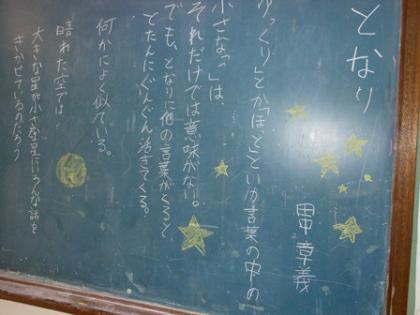 となり
田中 章義
「ゆっくり」とか「ほっ」という言葉の中の
小さな「っ」は、
それだけでは意味がない。
でも、となりに他の言葉がくると
とたんにぐんぐん活きてくる。
何かによく似ている。
晴れた空では
大きな星が小さな星にいろんな話を
きかせているのだろう